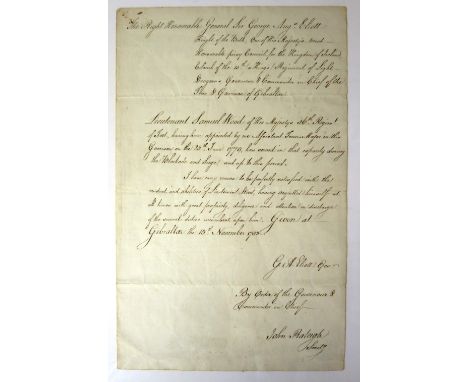 The Right Honorable General Sir George Aug.s Eliott
Knight of the Bath, One of His Majesty's most
Honorable privy Council for the Kingdom of Ireland
Colonel of the 15.th or King's Regiment of Light
Dragoons Governor & Commander in Chief of the
Town & Garrison of Gibraltar
Lieutenant Samuel Wood of His Majesty's Regim.t
of Foot, having been appointed by me Assistant Town Major in this
Garrison on the June has served in that capacity during
the Blockade and Siege and up to this period.
I have every reason to be perfectly satisfied with the
conduct and abilities of Lieutenant Wood, having acquitted himself at
all times with great propriety, diligence and attention in discharge
of the several duties incumbent upon him. Given at
Gibraltar the 13.th November 1783
G A Eliott Gov
By Order of the Governor &
Commander in Chief
John Raleigh